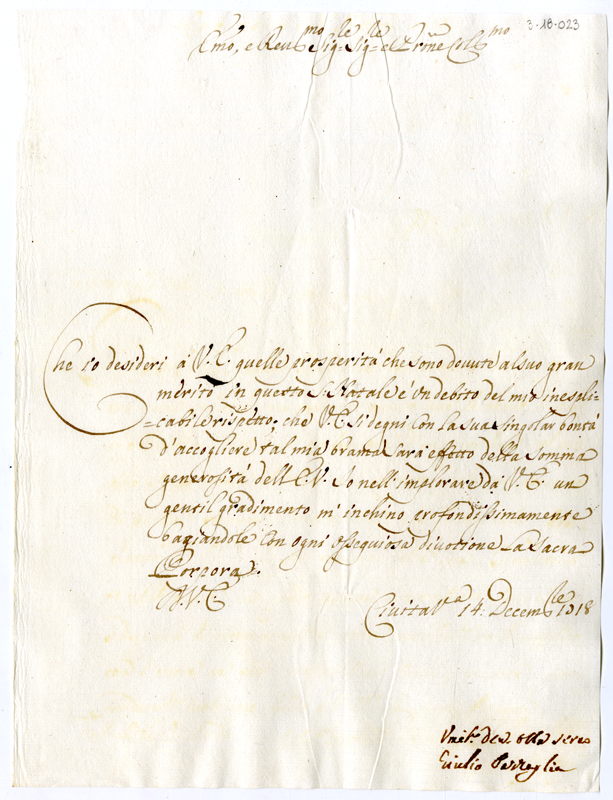 3-18-023
Emo, e Reu.mo Sig.le Sig.le e Prñe Col.mo
Che io desideri á V. E. quelle prosperitá che sono douute al suo gran
mérito in questo S. Natale é vn debito del mio inespli=
=cabile rispetto; che V. E. si degni con la sua singolar bontá
d'accogliere tal mia brama sará effetto della somma
generositá dell' E. V. Io nell' implorare da V. E. un
gentil gradimento m' inchino profondissimamente
bagiandole con ogni ossequiosa diuotione La Sacra
Porpora.
D. V. E.
Ciuita V.a 14. Decemb.le
Vmil.
Giulio